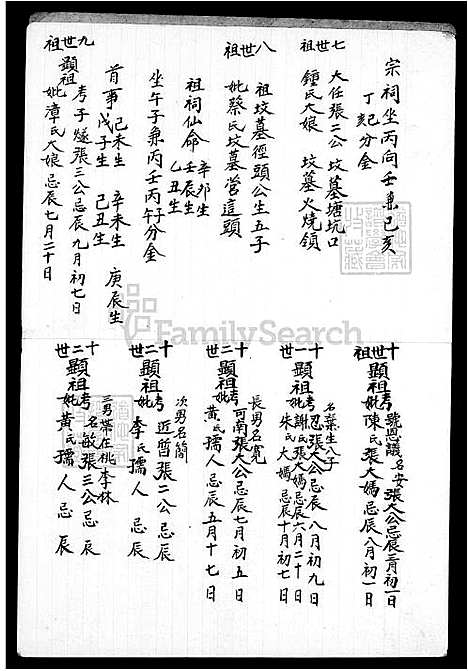 宗祠坐丙向壬兼己亥
丁記分金
七世祖
大任張二公 坟墓塘坑口
鍾氏大娘 坟墓火燒領
八世祖
祖坟墓徑頭公生五子
妣蔡氏坟墓营這頭
祖祠仙命 辛卯生 壬辰生 乙丑生
坐午子兼丙壬丙子分金
首事 己未生 戊子生 辛未生 己丑生 庚辰生
九世祖
顯祖考子燧張三公忌辰九月初七日
妣漳氏大娘忌辰七月二十日
十世祖
顯祖考號恩議名安張大公忌辰二月初一日
妣陳氏張大媽忌辰八月初一日
十一世
名葉生八子
顯祖考忍張大公忌辰八月初九日
妣謝氏張大媽忌辰六月二十日
朱氏大媽忌辰十月初七日
十二世
長男名寬
顯祖考可南張大公忌辰七月初五日
妣黃氏孺人忌辰五月十七日
十二世
次男名簡
顯祖考近哲張二公忌辰
妣李氏孺人忌辰
十二世
三男常在桃李林
顯祖考名敏張三公忌辰
妣黃氏孺人忌辰
FamilySearch